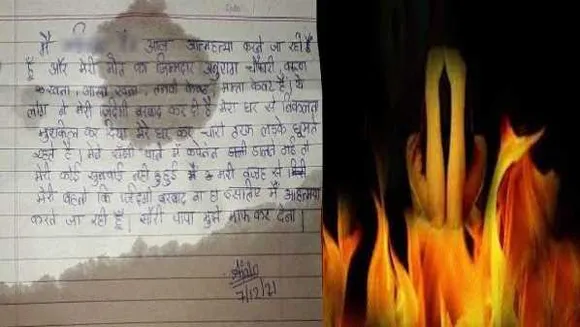 मैं आज आत्महत्या करने जा रही हूँ
हूँ और मेरी मौत का जिम्मेदार अनुराग चौधरी,
केवट है। ये
लोग ने मेरी जिंदगी बरबाद कर दी है मेरा घर से निकलना
मुश्किल कर दिया मेरे घर कर चारो तरफ लड़के घूमते
रहते है। मेने थाने में कंप्लेंट डालने गई तो
मेरी कोई सुनवाई नही हुई मै मेरी वजह से
मेरी बहनो कि जिंदगी बरबाद ना हो इसलिए मैं आत्महत्या
करने जा रही हूँ। सोरी पापा मुझे माफ कर देना।
7/12/21